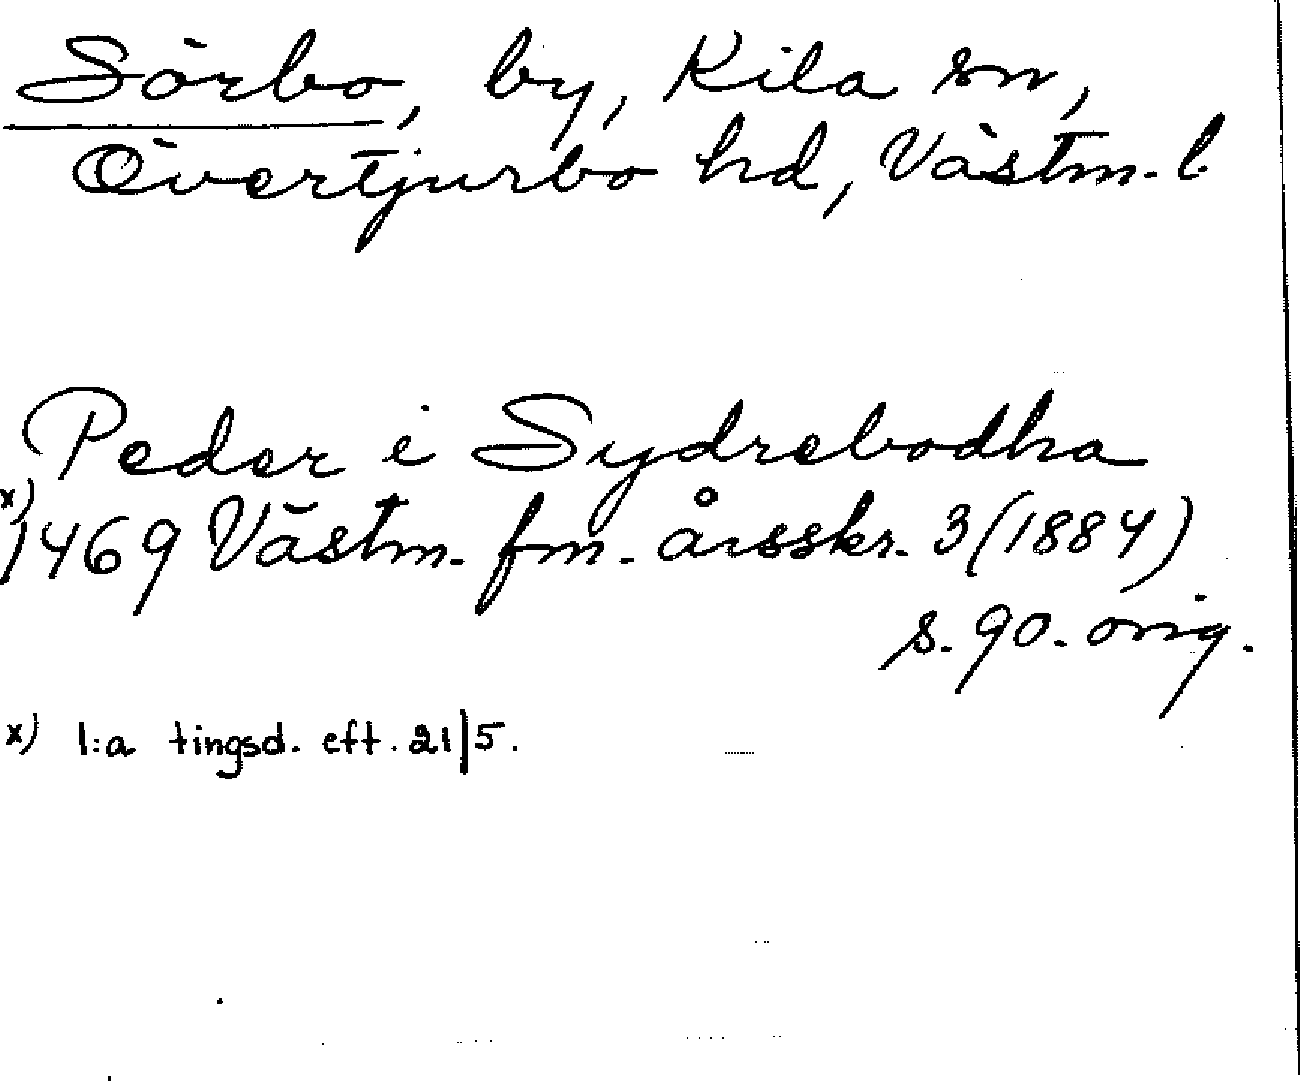 Sörbo, by, Kila sn,
Övertjurbo hd, Västm. l
Peder i Sydrebodha
x) 1469 Västm. fm. årsskr. 3 (1884)
s. 90. orig.
x) 1:a tingsd. eft. 21/5.